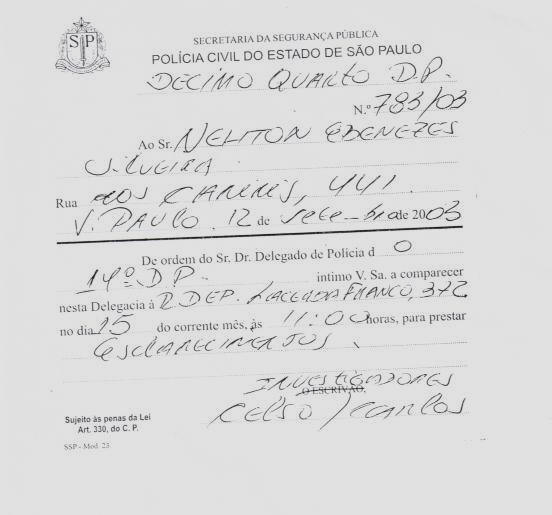 SP
SECRETARIA DA SEGURANÇA PÚBLICA
POLÍCIA CIVIL DO ESTADO DE SÃO PAULO
DECIMO QUARTO D.P.
N.º 783/03
Ao Sr. NELITON EBENEZES
SILVEIRA
Rua DOS CARIRIS, 441.
S. PAULO. 12 de Setembro de 2003
De ordem do Sr. Dr. Delegado de Polícia d O
14º D.P. intimo V. Sa. a comparecer
nesta Delegacia à R. DEP. LACERDA FRANCO, 372
no dia 15 do corrente mês, às 11:00 horas, para prestar
ESCLARECIMENTOS.
INVESTIGADORES
O ESCRIVÃO,
CELSO / CARLOS
Sujeito às penas da Lei
Art. 330, do C. P.
SSP - Mod. 23